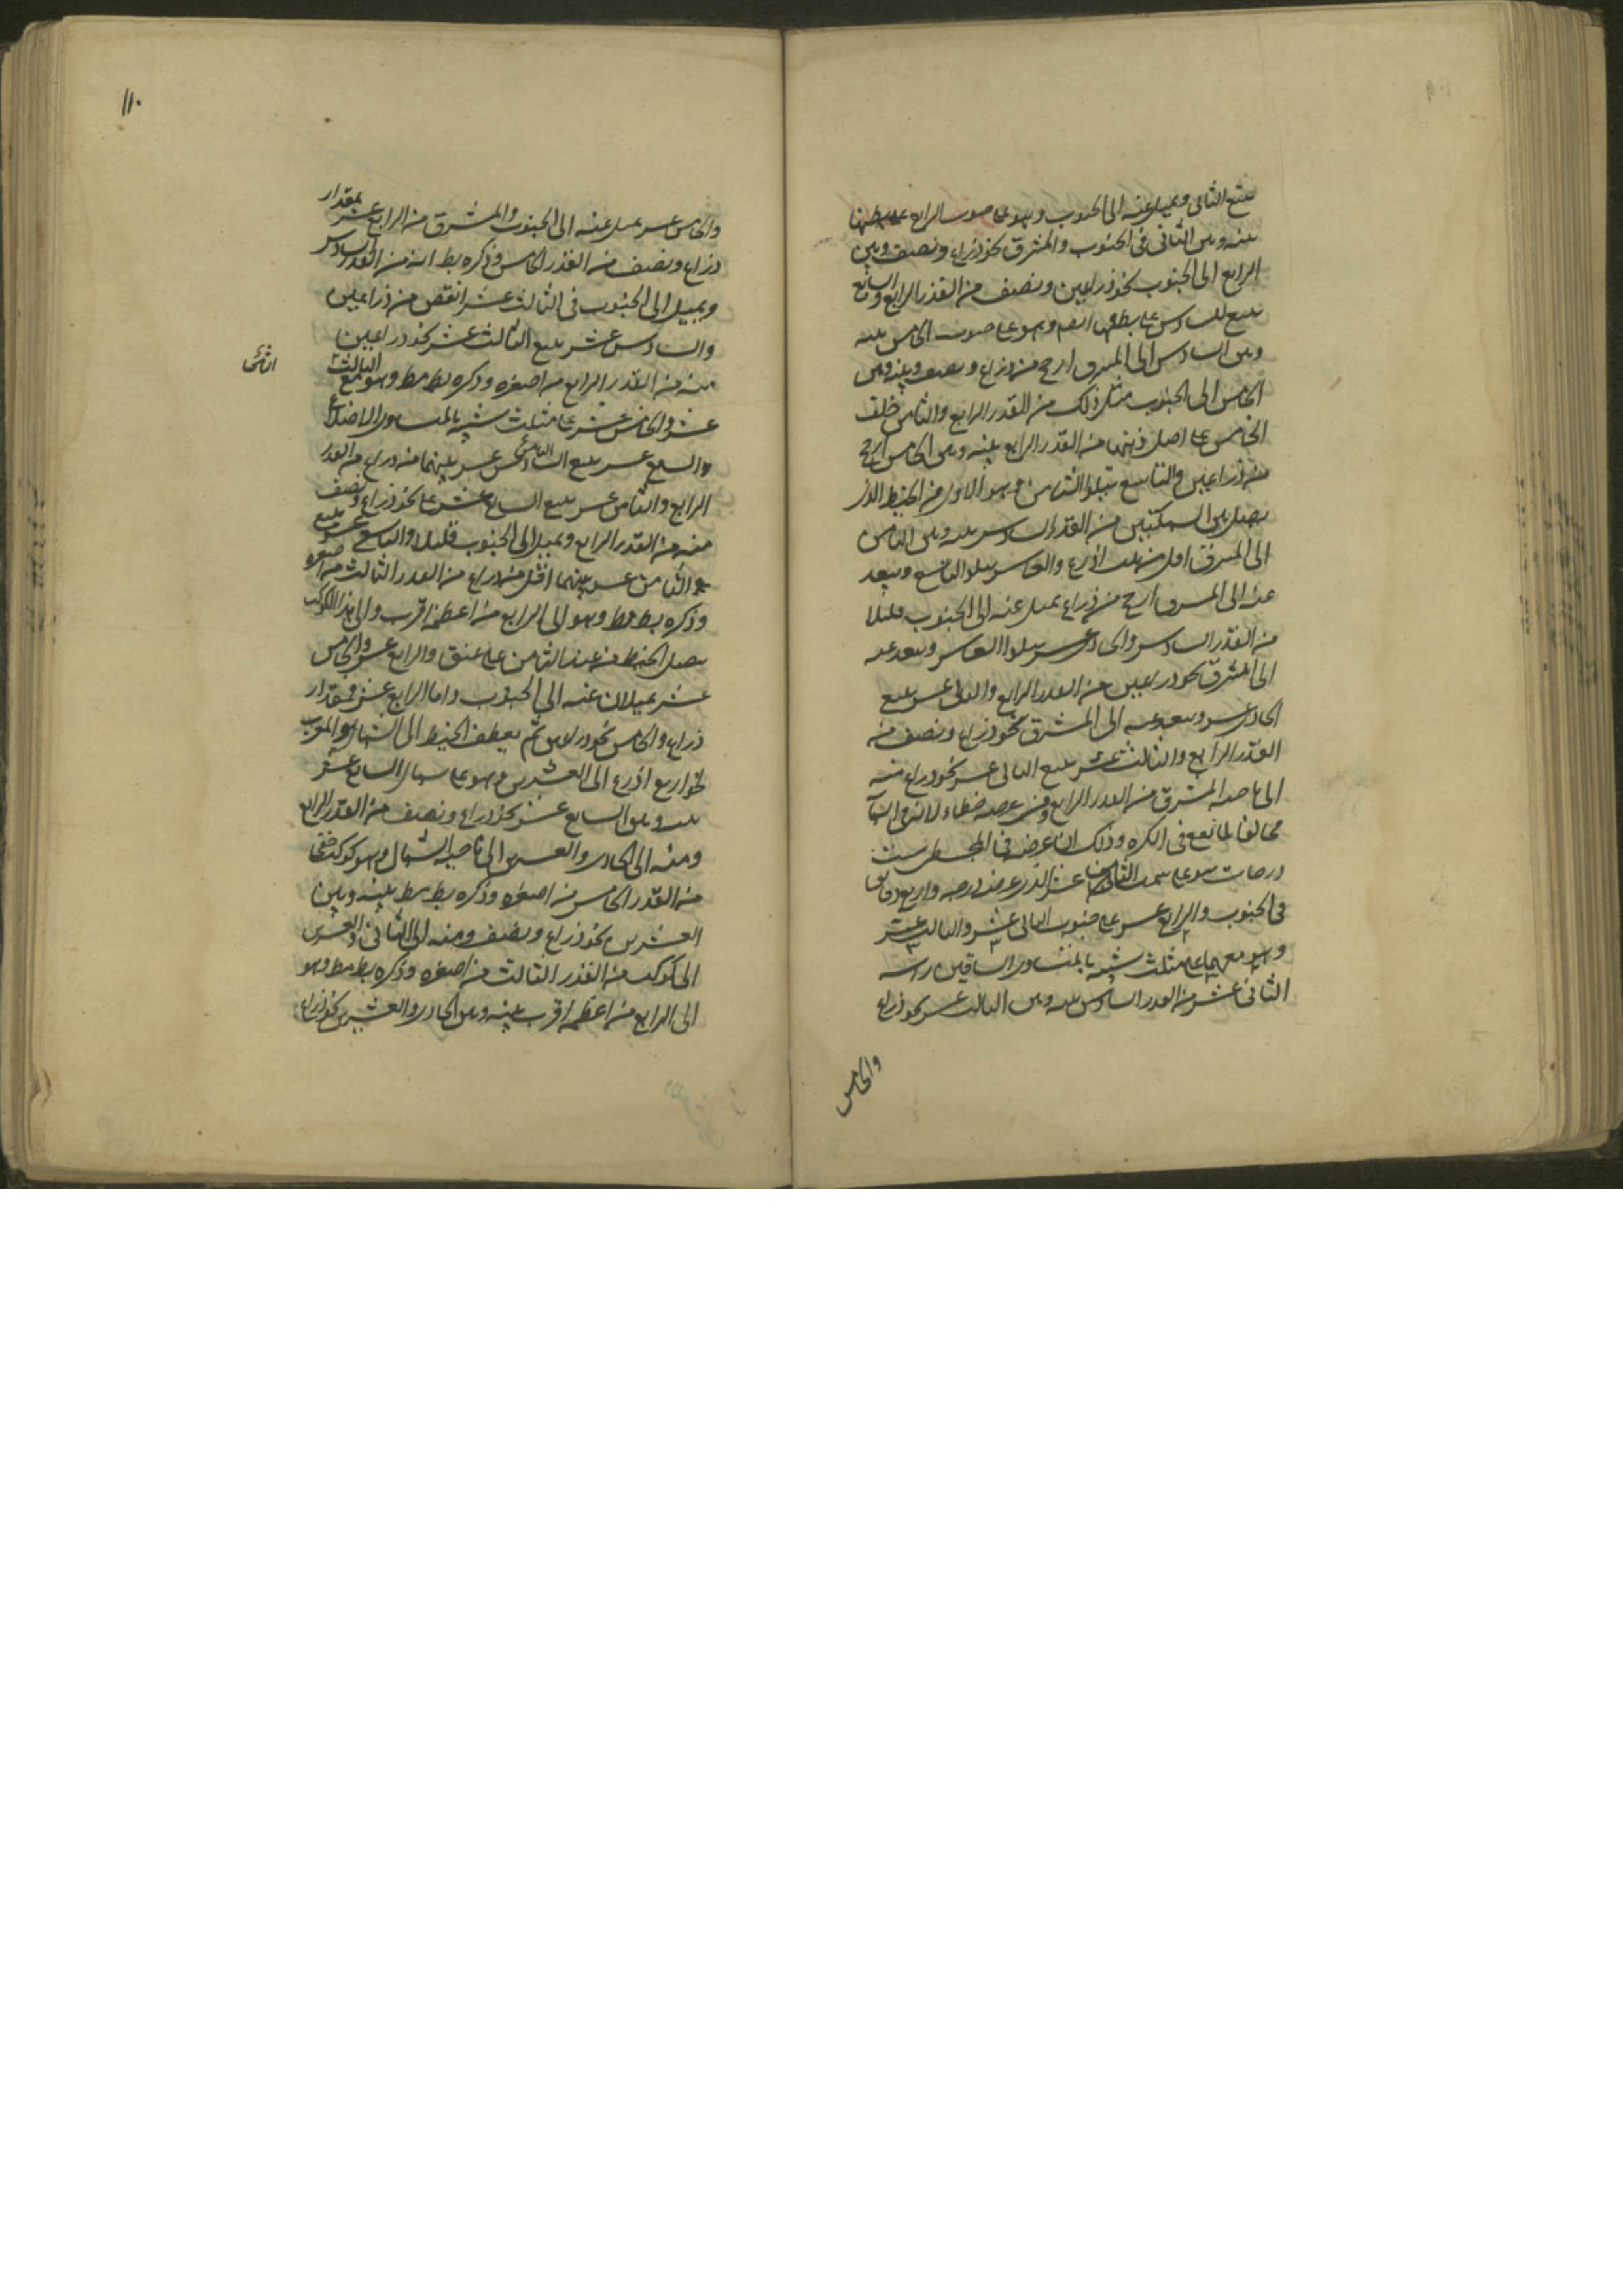 يتبع الثانى ويميل عنه الى الجنوب وهو على صوب الرابع على بطنها
بينه وبين الثانى فى الجنوب والمشرق نحو ذراع ونصف وبين
الرابع الى الجنوب نحو ذراعين ونصف من القدر الرابع والسابع
يتبع السادس على بطنها ايضا وهو على صوب الخامس بينه
وبين السادس الى المشرق ارجح من ذراع ونصف وبينه وبين
الخامس الى الجنوب مثل ذلك من القدر الرابع والثامن خلف
الخامس على اصل ذنبها من القدر الرابع بينه وبين الخامس ارجح
من ذراعين والتاسع يتلوا الثامن وهو الاول من الخيط الذى
يصل بين السمكتين من القدر السادس بينه وبين الثامن
الى المشرق اقل من ثلث اذرع والعاشر يتلو التاسع ويبعد
عنه الى المشرق ارجح من ذراع يميل عنه الى الجنوب قليلا
من القدر السادس والحادى عشر يتلوا العاشر ويبعد عنه
الى المشرق نحو ذراعين من القدر الرابع والثانى عشر يتبع
الحادى عشر ويبعد عنه الى المشرق نحو ذراع ونصف من
القدر الرابع والثالث عشر يتبع الثانى عشر نحو ذراع منه
الى ناحية المشرق من القدر الرابع وفى عرضه خطاء لانه فى السماء
مخالفا لما يقع فى الكره وذلك ان عرضه فى المجسطى ست
درجات سوى على سمت الثانى عشر الذى عرضه درجه واربع دقايق
فى الجنوب والرابع عشر على جنوب الثانى عشر والثالث عشر
وهو معهما على مثلث شبيه بالمتساوى الساقين راسه
الثانى عشر من القدر السادس بينه وبين الثالث عشر نحو ذراع
والخامس
١١٠
والخامس عشر يميل عنه الى الجنوب والمشرق من الرابع عشر بمقدار
ذراع ونصف من القدر الخامس وذكره بط انه من القدر السادس
ويميل الى الجنوب فى الثالث عشر انقص من ذراعين
والسادس عشر يتبع الثالث عشر نحو ذراعين
منه من القدر الرابع من اصغره وذكره بط مط وهو مع الثالث
عشر والخامس عشر على مثلث شبيه بالمتساوى الاضلاع
والسابع عشر يتبع السادس عشر بينهما منه ذراع من القدر
الرابع والثامن عشر يتبع السابع عشر على نحو ذراع ونصف
منه من القدر الرابع ويميل الى الجنوب قليلا والتاسع عشر يتبع
والثامن عشر بينهما اقل من ذراع من القدر الثالث من اصغره
وذكره بط مط وهو الى الرابع من اعظمه اقرب والى هذا الكوكب
يصل الخيط من عند الثامن على عنق والرابع عشر والخامس
عشر يميلان عنه الى الجنوب واما الرابع عشر فبمقدار
ذراع والخامس نحو ذراعين ثم يعطف الخيط الى الشمال والمغرب
نحو اربع اذرع الى العشرين وهو على شمال السابع عشر
بينه وبين السابع عشر نحو ذراع ونصف من القدر الرابع
ومنه الى الحادى والعشرين الى ناحية الشمال وهو كوكب خفى
من القدر الخامس من اصغره وذكره بط مط بينه وبين
العشرين نحو ذراع ونصف ومنه الى الثانى والعشرين
الى كوكب من القدر الثالث من اصغره وذكره بط مط وهو
الى الرابع من اعظمه اقرب بينه وبين الحادى والعشرين نحو ذراع